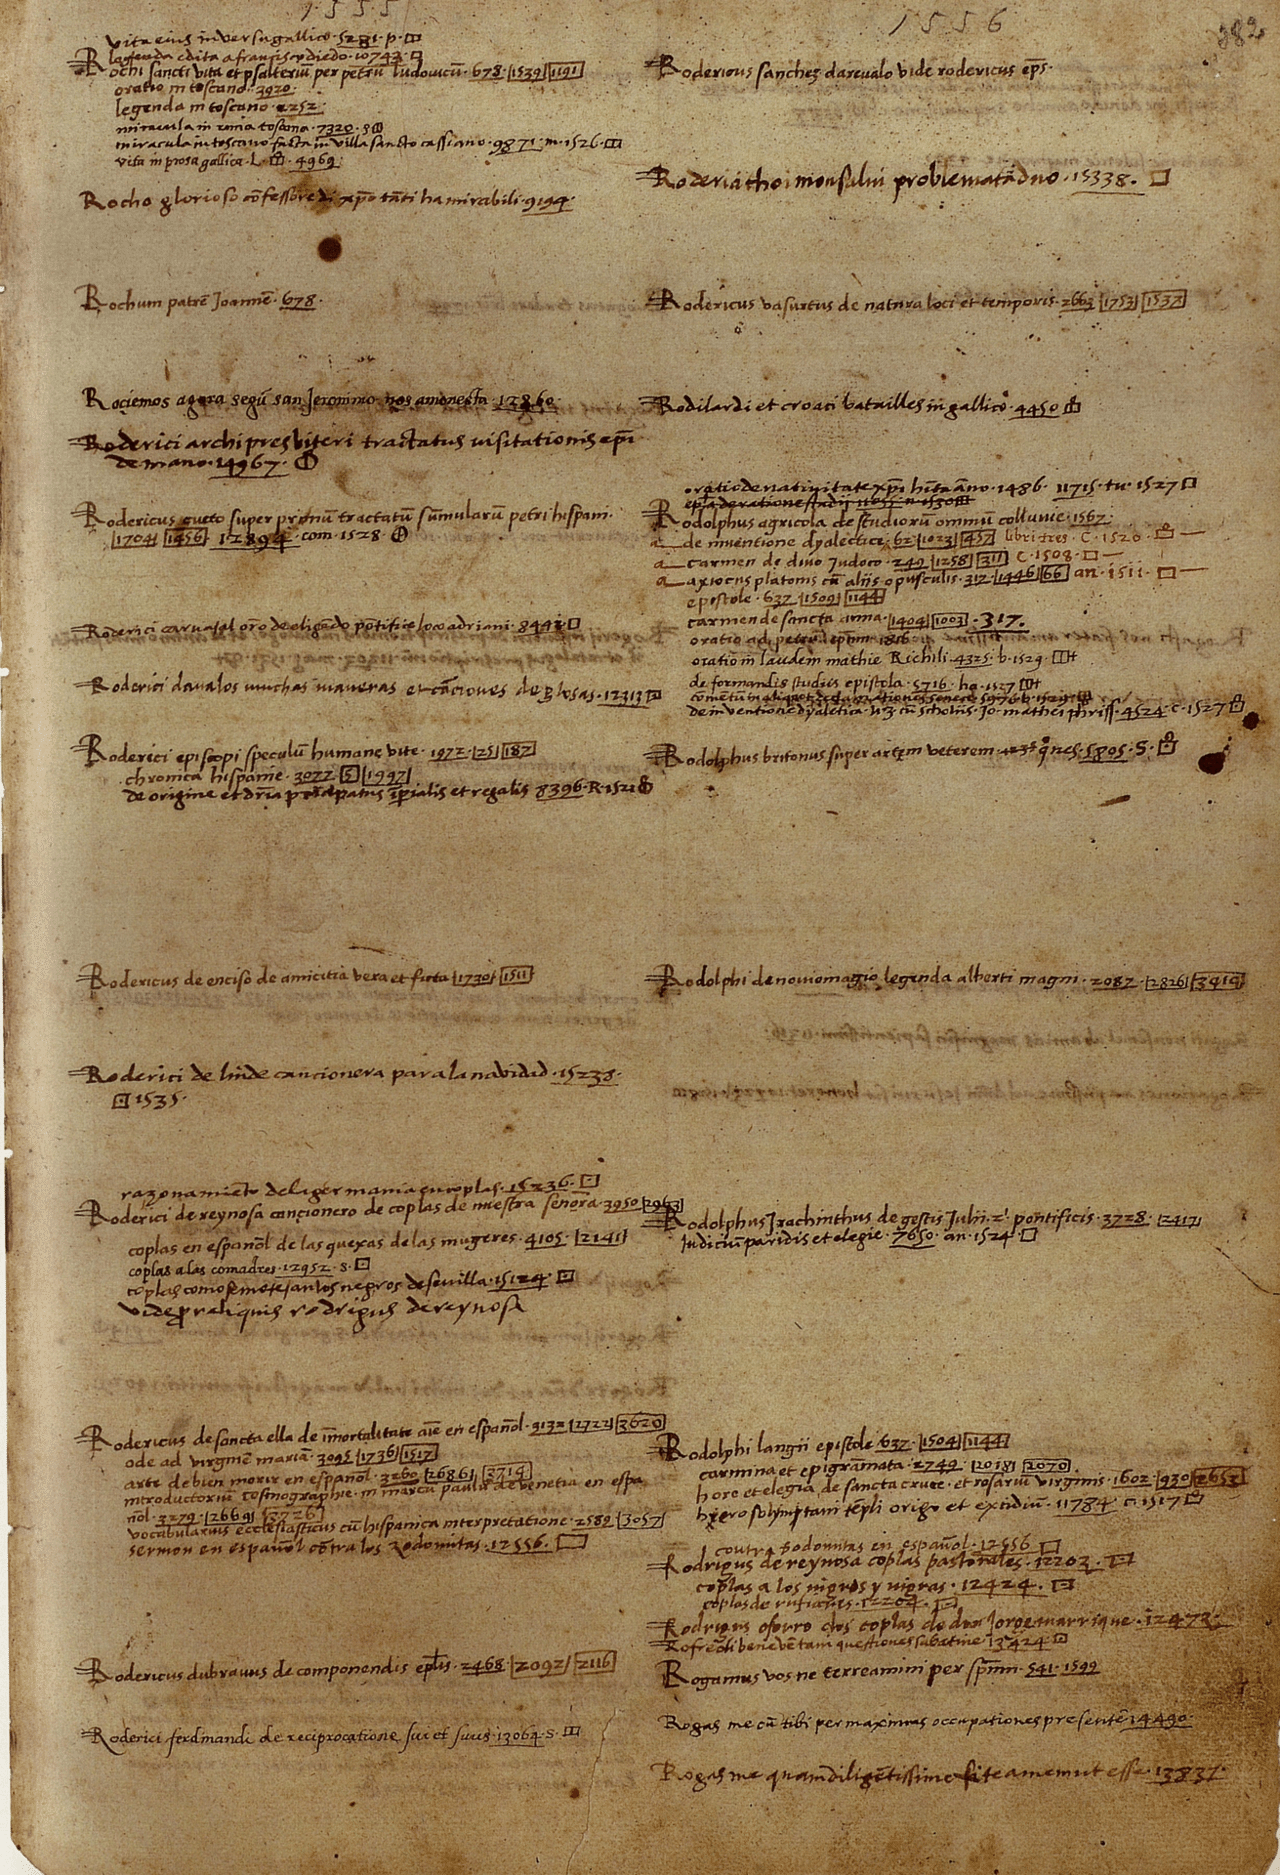 1555
vita eius in versu gallico. 5281. p.
legenda edita a francisco diedo. 10743.
Rochi sancti vita et psalteriũ per petrũ ludovicũ. 678. 1539 1191
oratio in toscano. 3920.
legenda in toscano. 2252.
miracula in rima toscana. 7320. s
miracula in toscano facta in villa sancto cassiano. 9871. m. 1526.
vita in prosa gallica. L. 4969.
Rocho glorioso cõfessore di xp̃o tãti ha mirabili. 9194.
Rochum patrẽ Joannẽ. 678.
Rociemos agora segũ san Jeronimo nos amonesta. 12860.
Roderici archipresbiteri tractatus visitationis ep̃i
de mano. 14967.
Rodericus cueto super primũ tractatũ sũmularũ petri hispani.
1704 1456 12894. com. 1528.
Roderici carvajal orõ de eligẽdo põtifice loco adriani. 8441.
Roderici davalos muchas maneras et cãciones de glosas. 12313
Roderici episcopi speculũ humane vite. 1972. 251 187
chronica hispanie. 3077 5 1997
de origine et dr̃ia prĩcipatus ĩperialis et regalis 8396. R. 1521
Rodericus de enciso de amicitia vera et ficta 1730 1511
Roderici de linde cancionera para la navidad. 15238.
1535.
razonamiẽto de la germania en coplas. 15236.
Roderici de reynosa cancionero de coplas de nuestra señora. 3950 2963
coplas en español de las quexas de las mugeres. 4105. 2141
coplas a las comadres. 12952. s.
coplas como se motejan los negros de sevilla. 15124.
vide p̱ reliquis rodrigus de reynosa
Rodericus de sancta ella de ĩmortalitate aĩe en español. 3132 2722 3620
ode ad virginẽ mariã. 3095 1736 1517
arte de bien morir en español. 3260 2686 3714
introductoriũ cosmographie in marcũ paulũ de venetia en espa
ñol. 3279. 2669 3726
vocabularius ecclesiasticus cũ hispanica interpretatione. 2589 3057
sermon en español cõtra los sodomitas. 12556.
Rodericus dubravus de componendis ep̃lis. 2468. 2092 2116
Roderici ferdinandi de reciprocatione sui et suus. 13064. s.
1556
382
Rodericus sanchez darevalo vide rodericus ep̃s.
problematã duo. 15338.
Rodericus vasurtus de natura loci et temporis. 2663 1753 1537
Rodilardi et croaci batailles in gallico. 4450
oratio de nativitate xp̃i hĩta ãno. 1486. 11715. tu. 1527
Rodolphus agricola de studiorũ omniũ colluvie. 1567
a de inventione dyalectice. 62 1023 457 libri tres. C. 1520.
a carmen de divo Judoco. 249 1258 311 C. 1508.
a axiocus platonis cũ alijs opusculis. 317. 1446 66 an. 1511.
epistole. 637 1509 1144
carmen de sancta anna. 1404 1003. 317.
oratio ad petrũ ep̃m 1816
oratio in laudem mathie Richili. 4325. b. 1529.
de formandis studiis epistola. 5716. ha. 1527
de inventione dyaletica li. 3 cũ scholiis Jo. mathei phriss. 4524. c. 1527
Rodolphus britonus super artem veterem q̃nes. 5805. S.
Rodolphi de noviomagio legenda alberti magni. 2087. 2826 3414
Rodolphus Jrachinthus de gestis Julii. 2i pontificis. 3728. 2417
Judiciũ paridis et elegie. 7650. an. 1524.
Rodolphi langii epistole 637. 1504 1144
carmina et epigrãmata. 2749. 2018 2070
hore et elegia de sancta cruce. et rosariũ virginis. 1602. 930 2653
hierosolymitani tẽpli origo et excidiũ. 11784 c. 1517
contra sodomitas en español. 12556
Rodrigus de reynosa coplas pastorales. 12203.
coplas a los nigros y nigras. 12424.
coplas de rufianes. 12204.
Rodrigus osorro dos coplas de dõ Jorge manrrique. 12473.
Rofredi benevẽtani questiones sabatine. 13424.
Rogamus vos ne terreamini per sp̃m. 541. 1599
Rogas me cũ tibi per maximas occupationes presentẽ 14490.
Rogas me quam diligẽtissime esse. 13837.